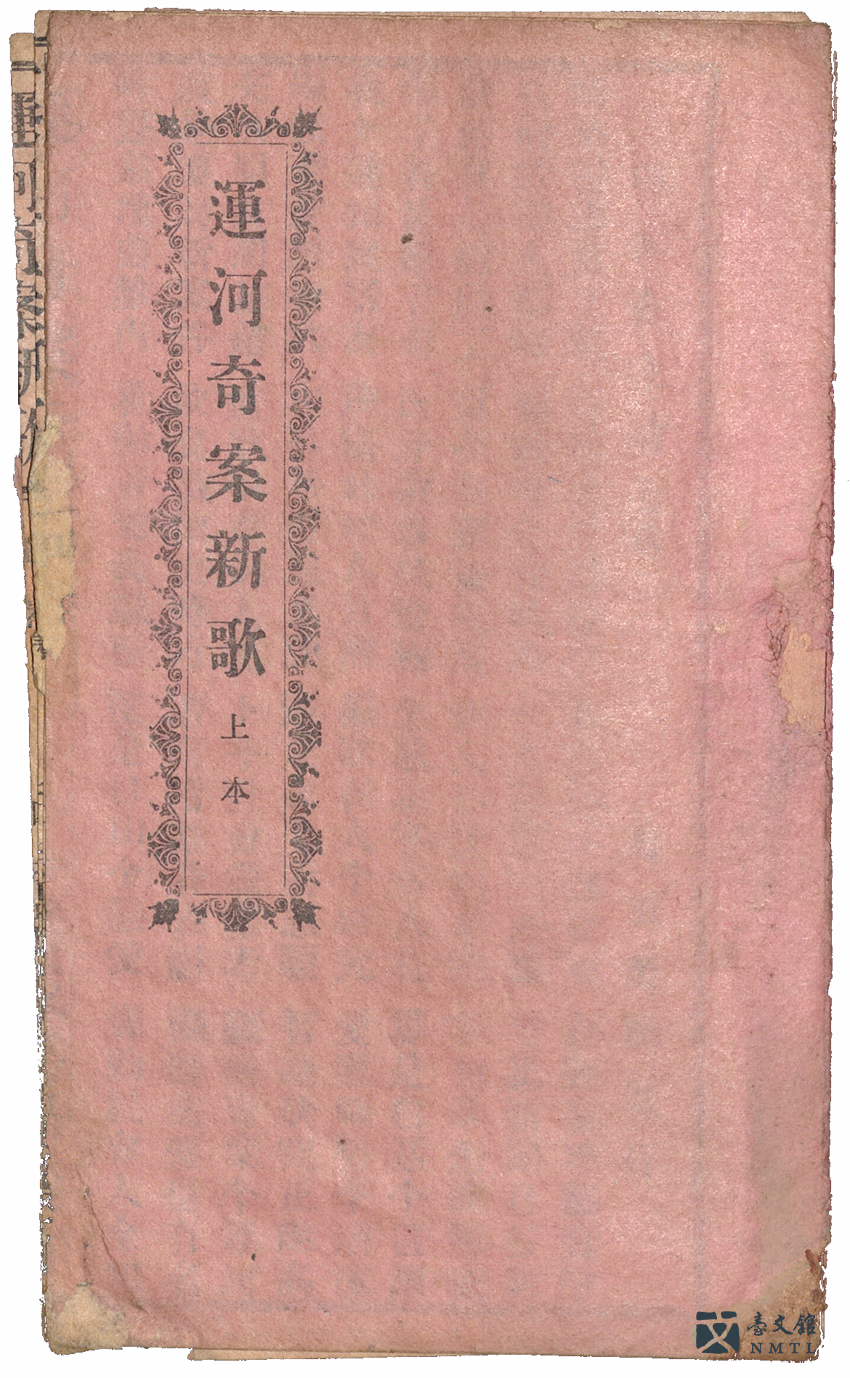 運河奇案新歌
上本
臺文館
NMTL